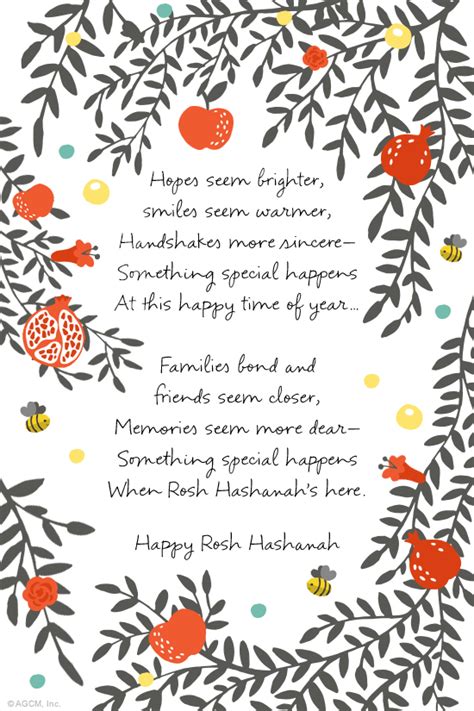 Hopes seem brighter,
smiles seem warmer,
Handshakes more sincere—
Something special happens
At this happy time of year...
Families bond and
friends seem closer,
Memories seem more dear—
Something special happens
When Rosh Hashanah's here.
Happy Rosh Hashanah
© AGCM, Inc.